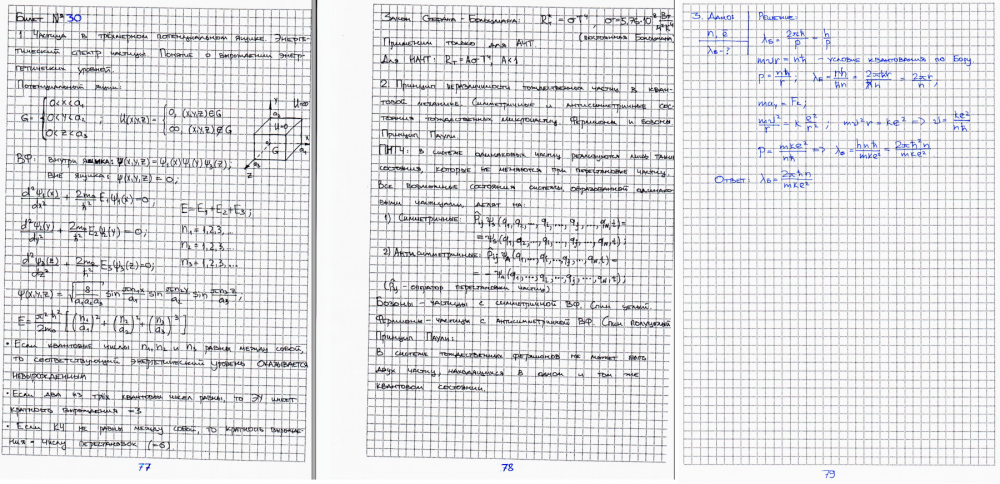 Билет № 30
1. Частица в трёхмерном потенциальном ящике. Энерге-
тический спектр частицы. Понятие о вырождении энер-
гетических уровней.
Потенциальный ящик:
G = { 0<x<a₁ 0<y<a₂ 0<z<a₃ ; U(x,y,z) = { 0, (x,y,z)∈G ∞, (x,y,z)∉G
y a₂ U=∞ U=0 G x a₁ a₃ z
ВФ: внутри ящика: ψ(x,y,z) = ψ₁(x)ψ₂(y)ψ₃(z);
вне ящика: ψ(x,y,z) = 0;
d²ψ₁(x)/dx² + 2m₀/ħ² E₁ψ₁(x) = 0; E = E₁+E₂+E₃;
d²ψ₂(y)/dy² + 2m₀/ħ² E₂ψ₂(y) = 0; n₁ = 1,2,3,...
n₂ = 1,2,3,...
d²ψ₃(z)/dz² + 2m₀/ħ² E₃ψ₃(z) = 0; n₃ = 1,2,3,...
ψ(x,y,z) = √(8/(a₁a₂a₃)) sin πn₁x/a₁ sin πn₂y/a₂ sin πn₃z/a₃;
E = π²ħ²/2m₀ [(n₁/a₁)² + (n₂/a₂)² + (n₃/a₃)²]
• Если квантовые числа n₁, n₂ и n₃ равны между собой,
то соответствующий энергетический уровень оказывается
невырожденным
• Если два из трёх квантовых чисел равны, то ЭУ имеет
кратность вырождения – 3
• Если КЧ не равны между собой, то кратность вырожде-
ния = числу перестановок (–6).
77
Закон Стефана – Больцмана: R*т = σT⁴, σ = 5,76·10⁻⁸ Вт/м²К⁴
(постоянная Больцмана)
Применим только для АЧТ.
Для НАЧТ: Rт = AσT⁴, A<1
2. Принцип неразличимости тождественных частиц в кван-
товой механике. Симметричные и антисимметричные сос-
тояния тождественных микрочастиц. Фермионы и бозоны.
Принцип Паули.
ПНТЧ: в системе одинаковых частиц реализуются лишь такие
состояния, которые не меняются при перестановке частиц.
Все возможные состояния системы, образованной одинако-
выми частицами, делят на:
1) Симметричные: P̂ij ψs(q₁,q₂,...,qi,...,qj,...,qN,t) =
= ψs(q₁,q₂,...,qi,...,qj,...,qN,t);
2) Антисимметричные: P̂ij ψA(q₁,...,qi,...,qj,...,qN,t) =
= –ψA(q₁,...,qi,...,qj,...,qN,t);
(P̂ij – оператор перестановки частиц)
Бозоны – частицы с симметричной ВФ. Спин целый.
Фермионы – частицы с антисимметричной ВФ. Спин полуцелый
Принцип Паули:
В системе тождественных фермионов не может быть
двух частиц, находящихся в одном и том же
квантовом состоянии.
78
3. Дано: Решение:
n, ē
λБ – ?
λБ = 2πħ/p = h/p
mυr = nħ – условие квантования по Бору.
p = nħ/r; λБ = hr/ħn = 2πħr/ħn = 2πr/n;
maₙ = Fк;
mυ²/r = k e²/r²; mυ²r = ke² => υ = ke²/nħ
p = mke²/nħ => λБ = hnħ/mke² = 2πħ²n/mke²
Ответ: λБ = 2πħn/mke²
79